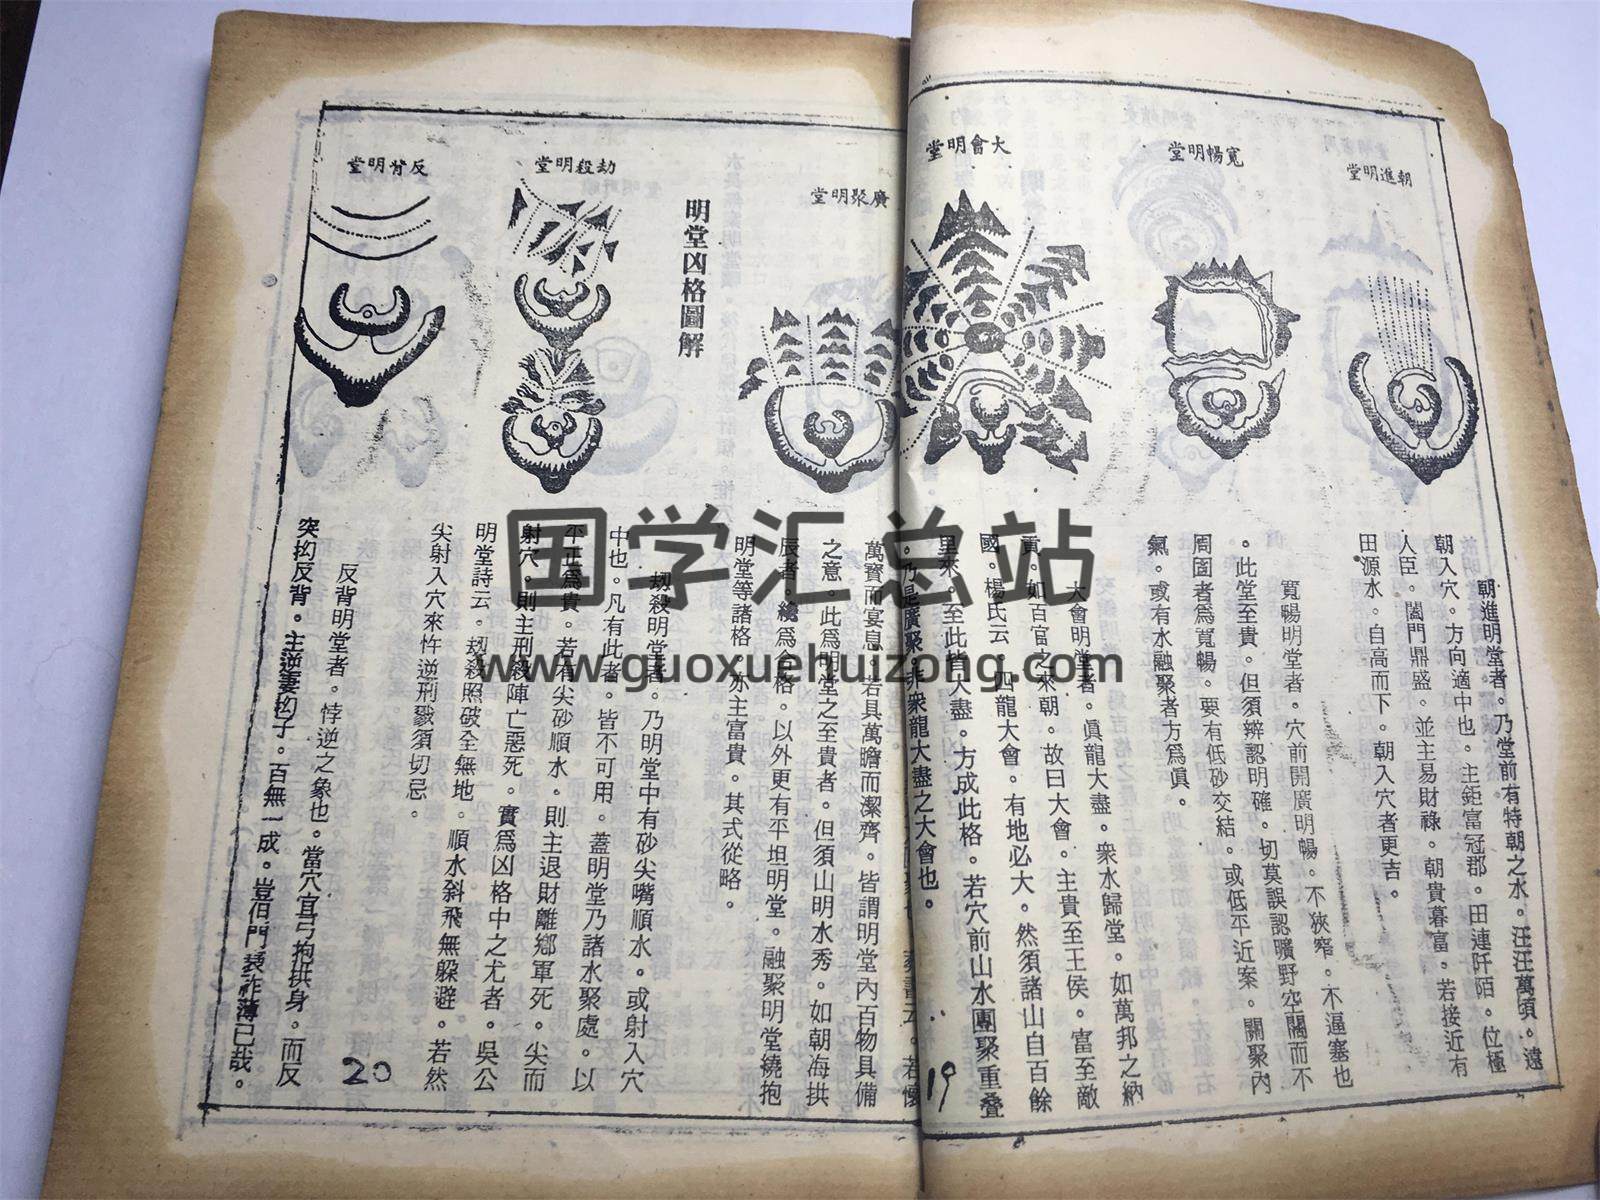 朝進明堂
寬暢明堂
大會明堂
朝進明堂者。乃堂前有特朝之水。汪汪萬頃。遠
朝入穴。方向適中也。主鉅富冠郡。田連阡陌。位極
人臣。闔門鼎盛。並主易財祿。朝貴暮富。若接近有
田源水。自高而下。朝入穴者更吉。
寬暢明堂者。穴前開廣明暢。不狹窄。不逼塞也
。此堂至貴。但須辨認明確。切莫誤認曠野空闊而不
周固者爲寬暢。要有低砂交結。或低平近案。關聚內
氣。或有水融聚者方爲眞。
大會明堂者。眞龍大盡。衆水歸堂。如萬邦之納
貢。如百官之來朝。故曰大會。主貴至王侯。富至敵
國。楊氏云。四龍大會。有地必大。然須諸山自百餘
里來。至此皆大盡。方成此格。若穴前山水團聚重叠
。乃是廣聚。非衆龍大盡之大會也。
19
廣聚明堂
明堂凶格圖解
劫殺明堂
反背明堂
萬寶而宴息。若具萬膳而潔齊。皆謂明堂內百物具備
之意。此爲明堂之至貴者。但須山明水秀。如朝海拱
辰者。纔爲合格。以外更有平坦明堂。融聚明堂繞抱
明堂等諸格 亦主富貴。其式從略。
刼殺明堂者。乃明堂中有砂尖嘴順水。或射入穴
中也。凡有此者。皆不可用。蓋明堂乃諸水聚處。以
平正爲貴。若有尖砂順水。則主退財離鄉軍死。尖而
射穴。則主刑殺陣亡惡死。實爲凶格中之尤者。吳公
明堂詩云。刼殺照破全無地。順水斜飛無躱避。若然
尖射入穴來忤逆刑戮須切忌。
反背明堂者。悖逆之象也。當穴宜弓抱拱身。而反
突拗反背。主逆妻拗子。百無一成。豈佰門衰祚薄已哉。
20
国学汇总站
www.guoxuehuizong.com